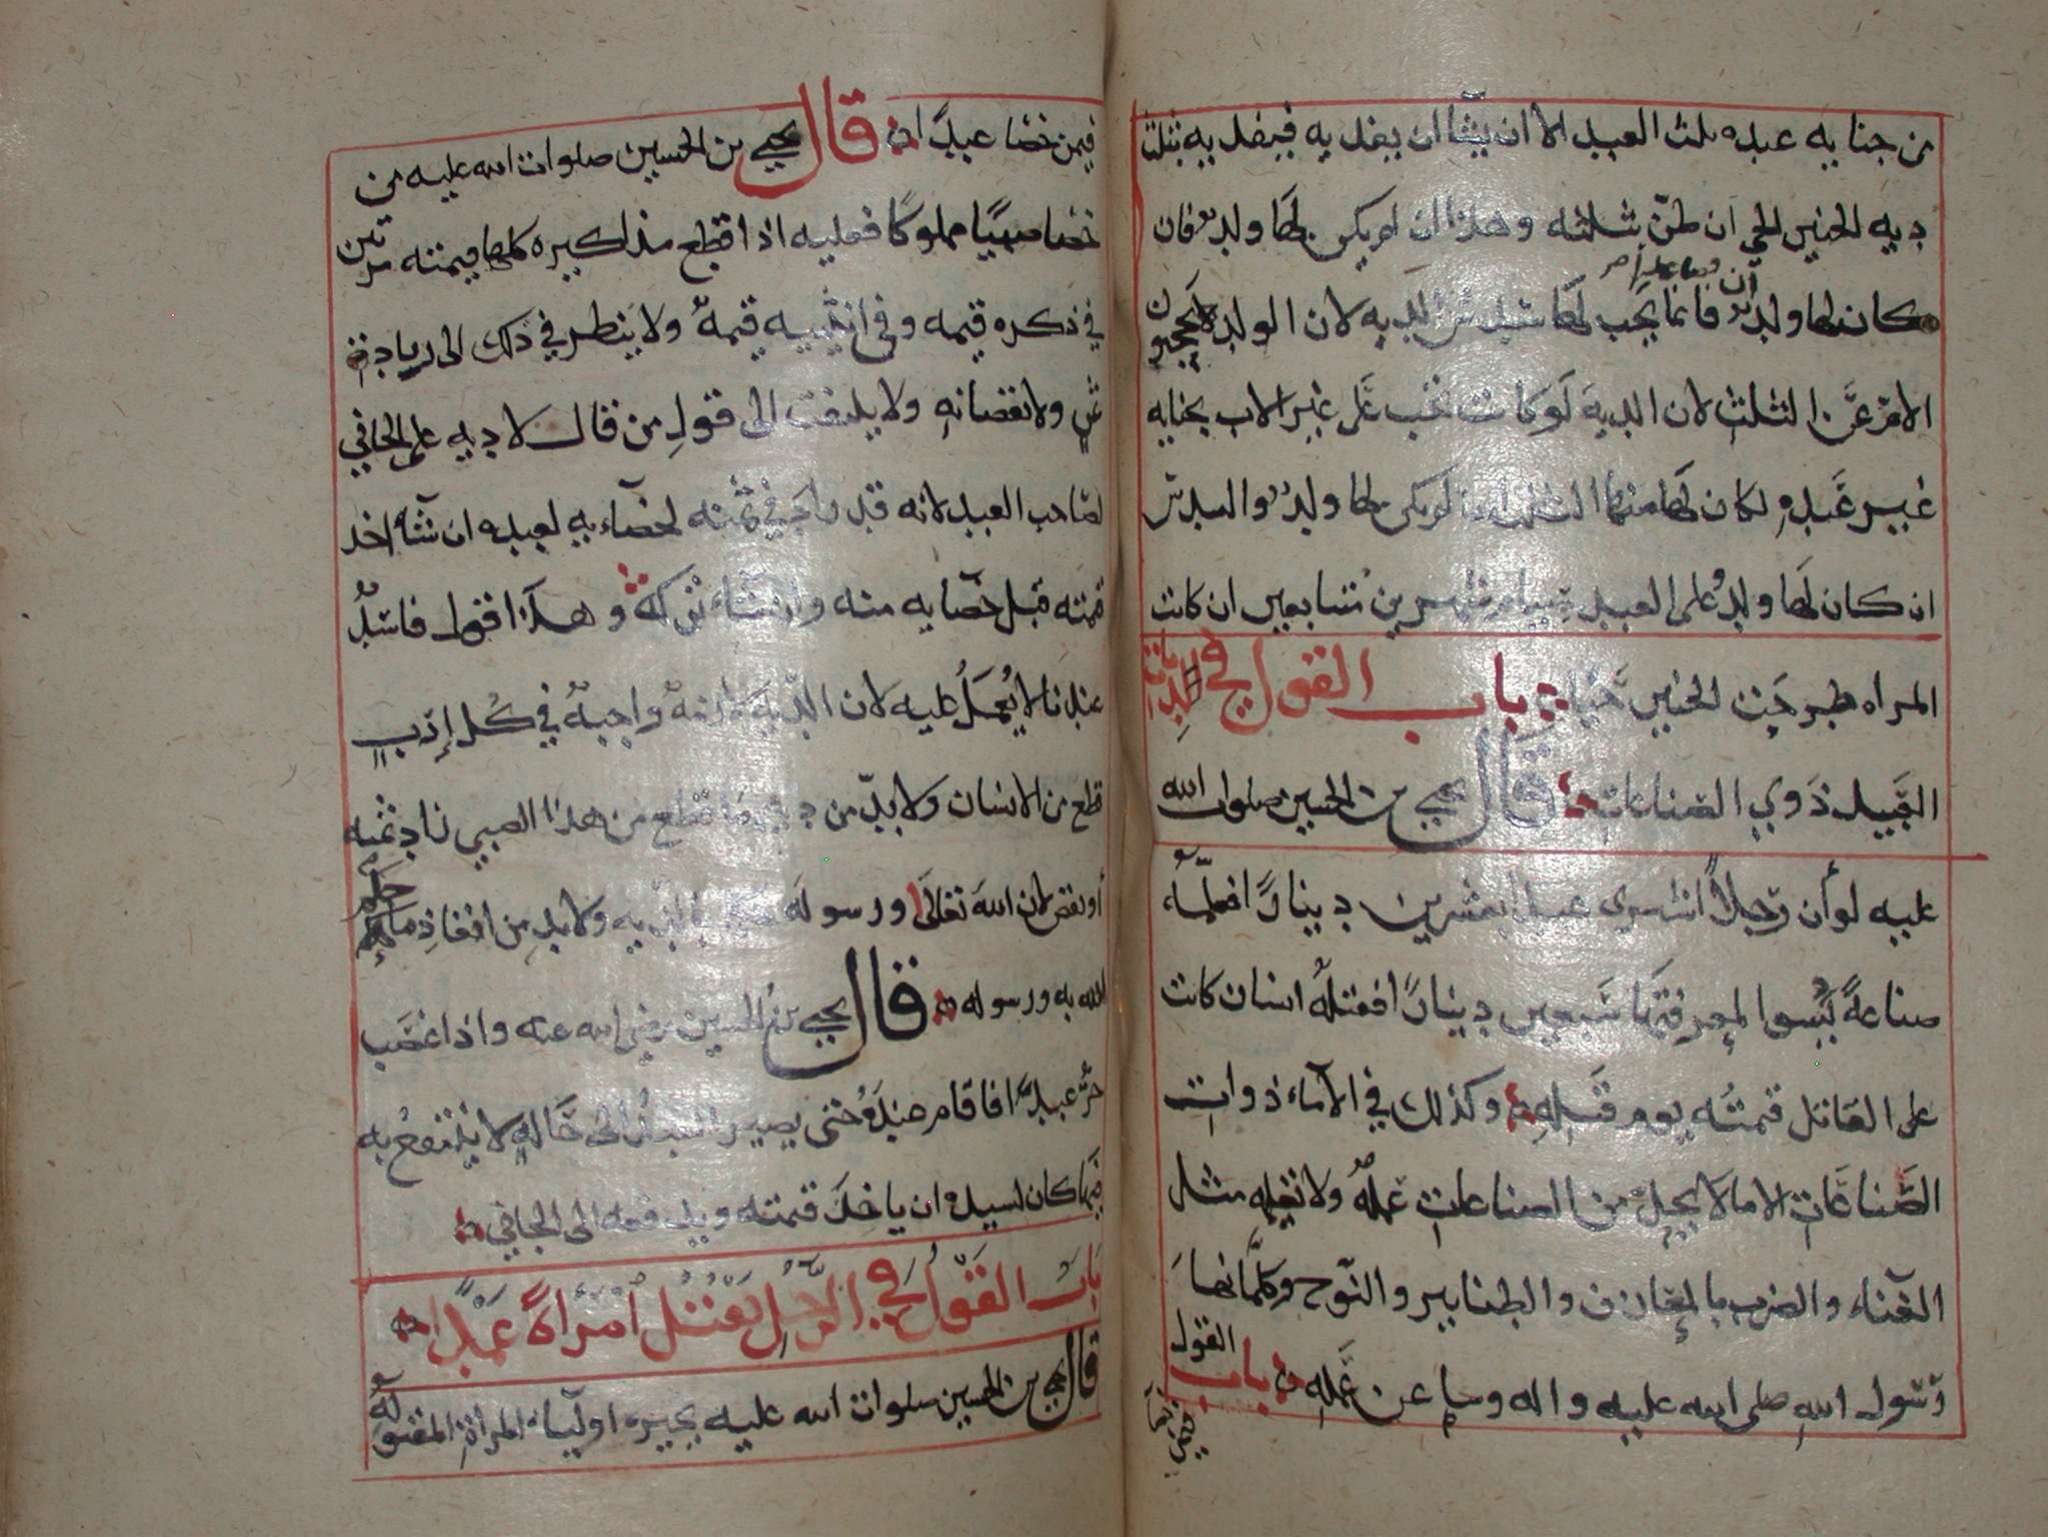 من جنايه عبده ثلث العبد الا ان يشا ان يفديه فيفديه بثلث
ديه الجنين الحي ان طرحته وهذا ان لم يكن لها ولد فان
كان لها ولد فانما يجب لها سدس الديه لان الولد لا يحجبون
الام عن الثلث لان الديه لو كانت تجب على غير الاب بجنايه
غير عبده لكان لها منها الثلث اذا لم يكن لها ولد والسدس
ان كان لها ولد وعلى العبد صيام شهرين متتابعين ان كانت
المراه طرحت الجنين حيا باب القول في ديات
العبيد ذوي الصناعات قال يحيى بن الحسين صلوات الله
عليه لو أن رجلا اشترى عبدا بعشرين دينارا فعلمه
صناعة تسوا لمعرفتها سبعين دينارا فقتله انسان كانت
على القاتل قيمته يوم قتله وكذلك في الآماء ذوات
الصناعات الا ما لا يحل من الصناعات عمله ولا تعليمه مثل
الغناء والضرب بالمعازف والطنابير والنوح وكلما نها
رسول الله صلى الله عليه واله وسلم عن عمله باب القول
فيمن خصا عبدا قال يحيى بن الحسين صلوات الله عليه من
خصا صبيا مملوكا فعليه اذا قطع مذاكيره كلها قيمته مرتين
في ذكره قيمه وفي انثييه قيمة ولا ينظر في ذلك الى زيادة
ثمن ولا نقصانه ولا يلتفت الى قول من قال لا ديه على الجاني
لصاحب العبد لانه قد زاد في ثمنه لخصاءيه لعبده ان شآ اخذ
قيمته قبل خصايه منه وان شاء تركه وهذا قول فاسد
عندنا لا يعمل عليه لان الدية لازمة واجبة في كل إرب
قطع من الانسان ولا بد من دية ما قطع من هذا الصبي زاد ثمنه
أو نقص لان الله تعالى ورسوله بالديه ولا بد من انفاذ ما حكم
الله به ورسوله قال يحيى بن الحسين رضي الله عنه واذا غصب
حر عبدا فاقام عنده حتى يصير العبد الى حالة لا ينتفع به
فيها كان لسيده ان ياخذ قيمته ويدفعه الى الجاني
باب القول في الرجل يقتل امرأة عمدا
قال يحيى بن الحسين صلوات الله عليه يخير اوليآء المرأة المقتولة